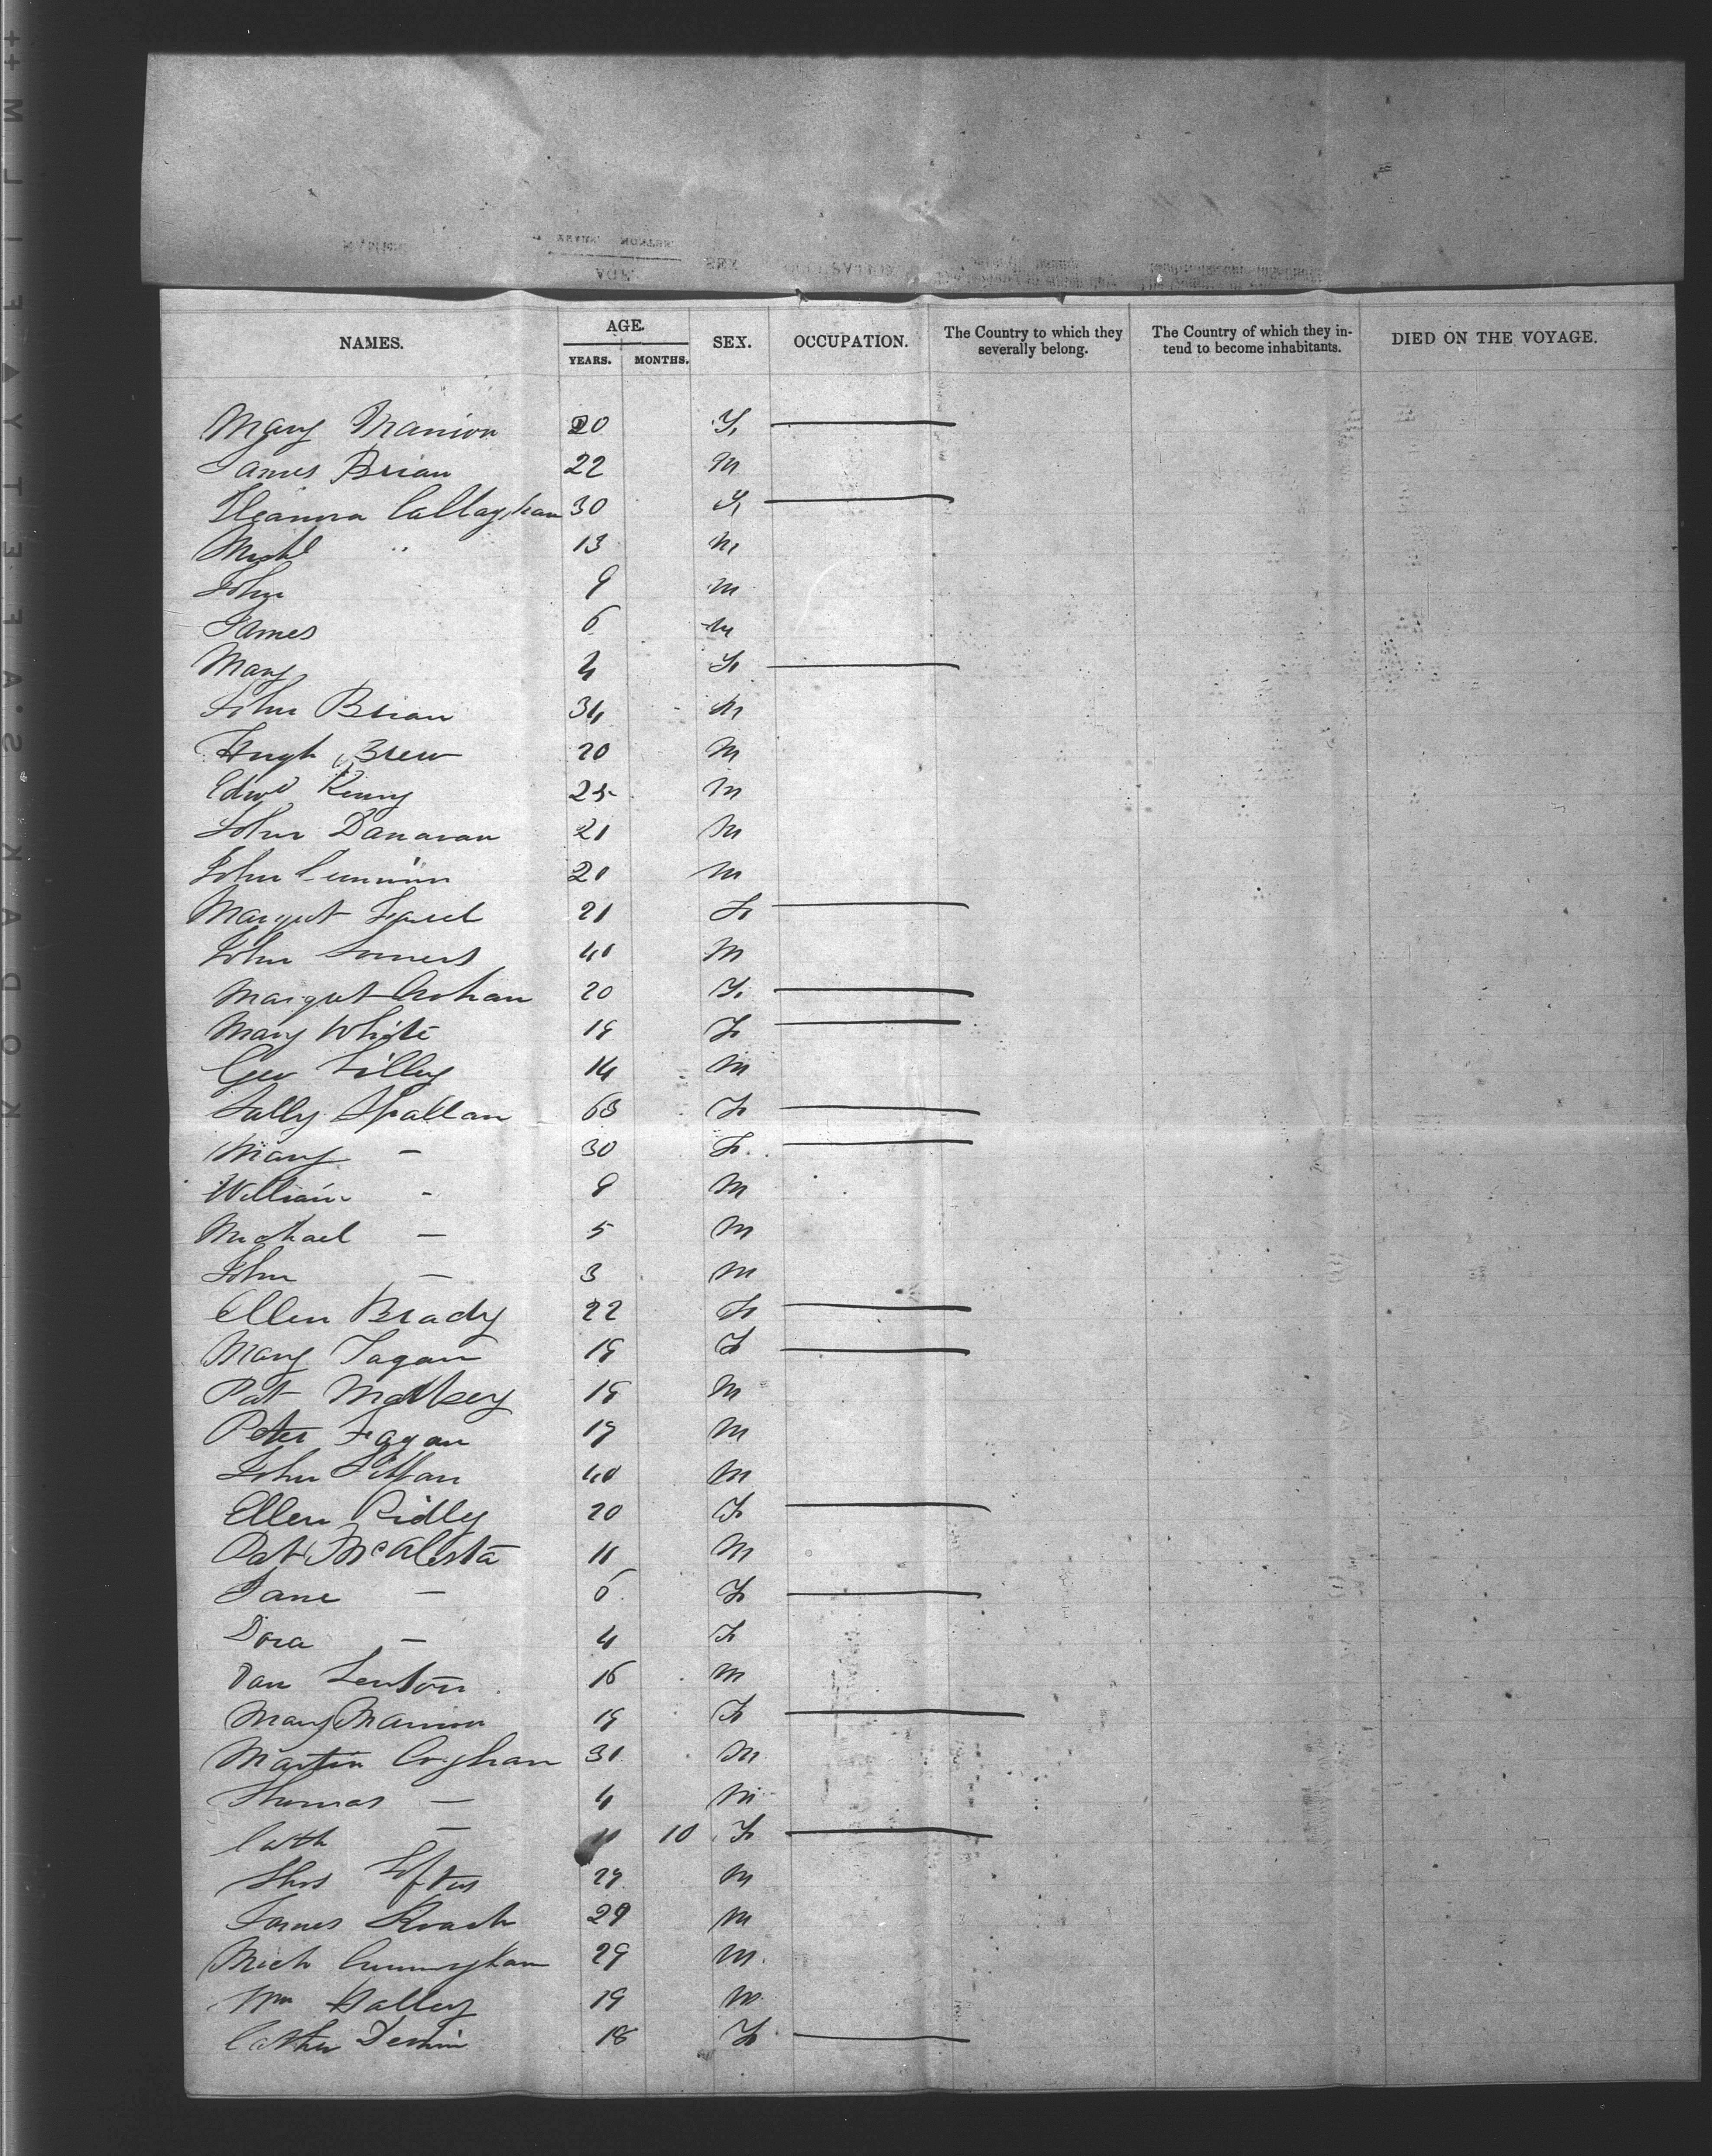 NAMES. AGE. YEARS. MONTHS. SEX. OCCUPATION. The Country to which they severally belong. The Country of which they intend to become inhabitants. DIED ON THE VOYAGE.
Mary Manion 20 F.
James Brian 22 M
Eleanora Callaghan 30 F
Michl " 13 M
John 9 M
James 6 M
Mary 4 F
John Brian 34 M
Hugh Brew 20 M
Edwd Kenny 25 M
John Danavan 21 M
John 21 M
Margret 21 F
John Somers 40 M
Margret 20 F.
Mary White 19 F
Geo Lilley 14 M
Sally Spallan 63 F
Mary - 30 F.
William - 9 M
Michael - 5 M
John - 3 M
Ellen Brady 22 F
Mary Fagan 18 F
Pat 18 M
Peter Fagan 17 M
John 40 M
Ellen Ridley 20 F
Pat McAlista 11 M
Jane - 6 F
Dora - 4 F
Dan Lenton 16 M
Mary Manion 19 F
Martin Coghan 30 M
Thomas - 4 M
Cath - 10 F
Thos Loftus 27 M
James Roach 29 M
Mich Cunningham 29 M.
Wm Halley 19 M
18 F